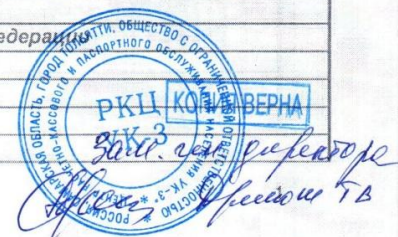 едерации
РОССИЯ * САМАРСКАЯ ОБЛАСТЬ, ГОРОД ТОЛЬЯТТИ, ОБЩЕСТВО С ОГРАНИЧЕННОЙ ОТВЕТСТВЕННОСТЬЮ
РАСЧЕТНО-КАССОВОГО И ПАСПОРТНОГО ОБСЛУЖИВАНИЯ НАСЕЛЕНИЯ УК-3"
РКЦ
УК-3
КОПИЯ ВЕРНА
Зам. ген. директора
ТВ